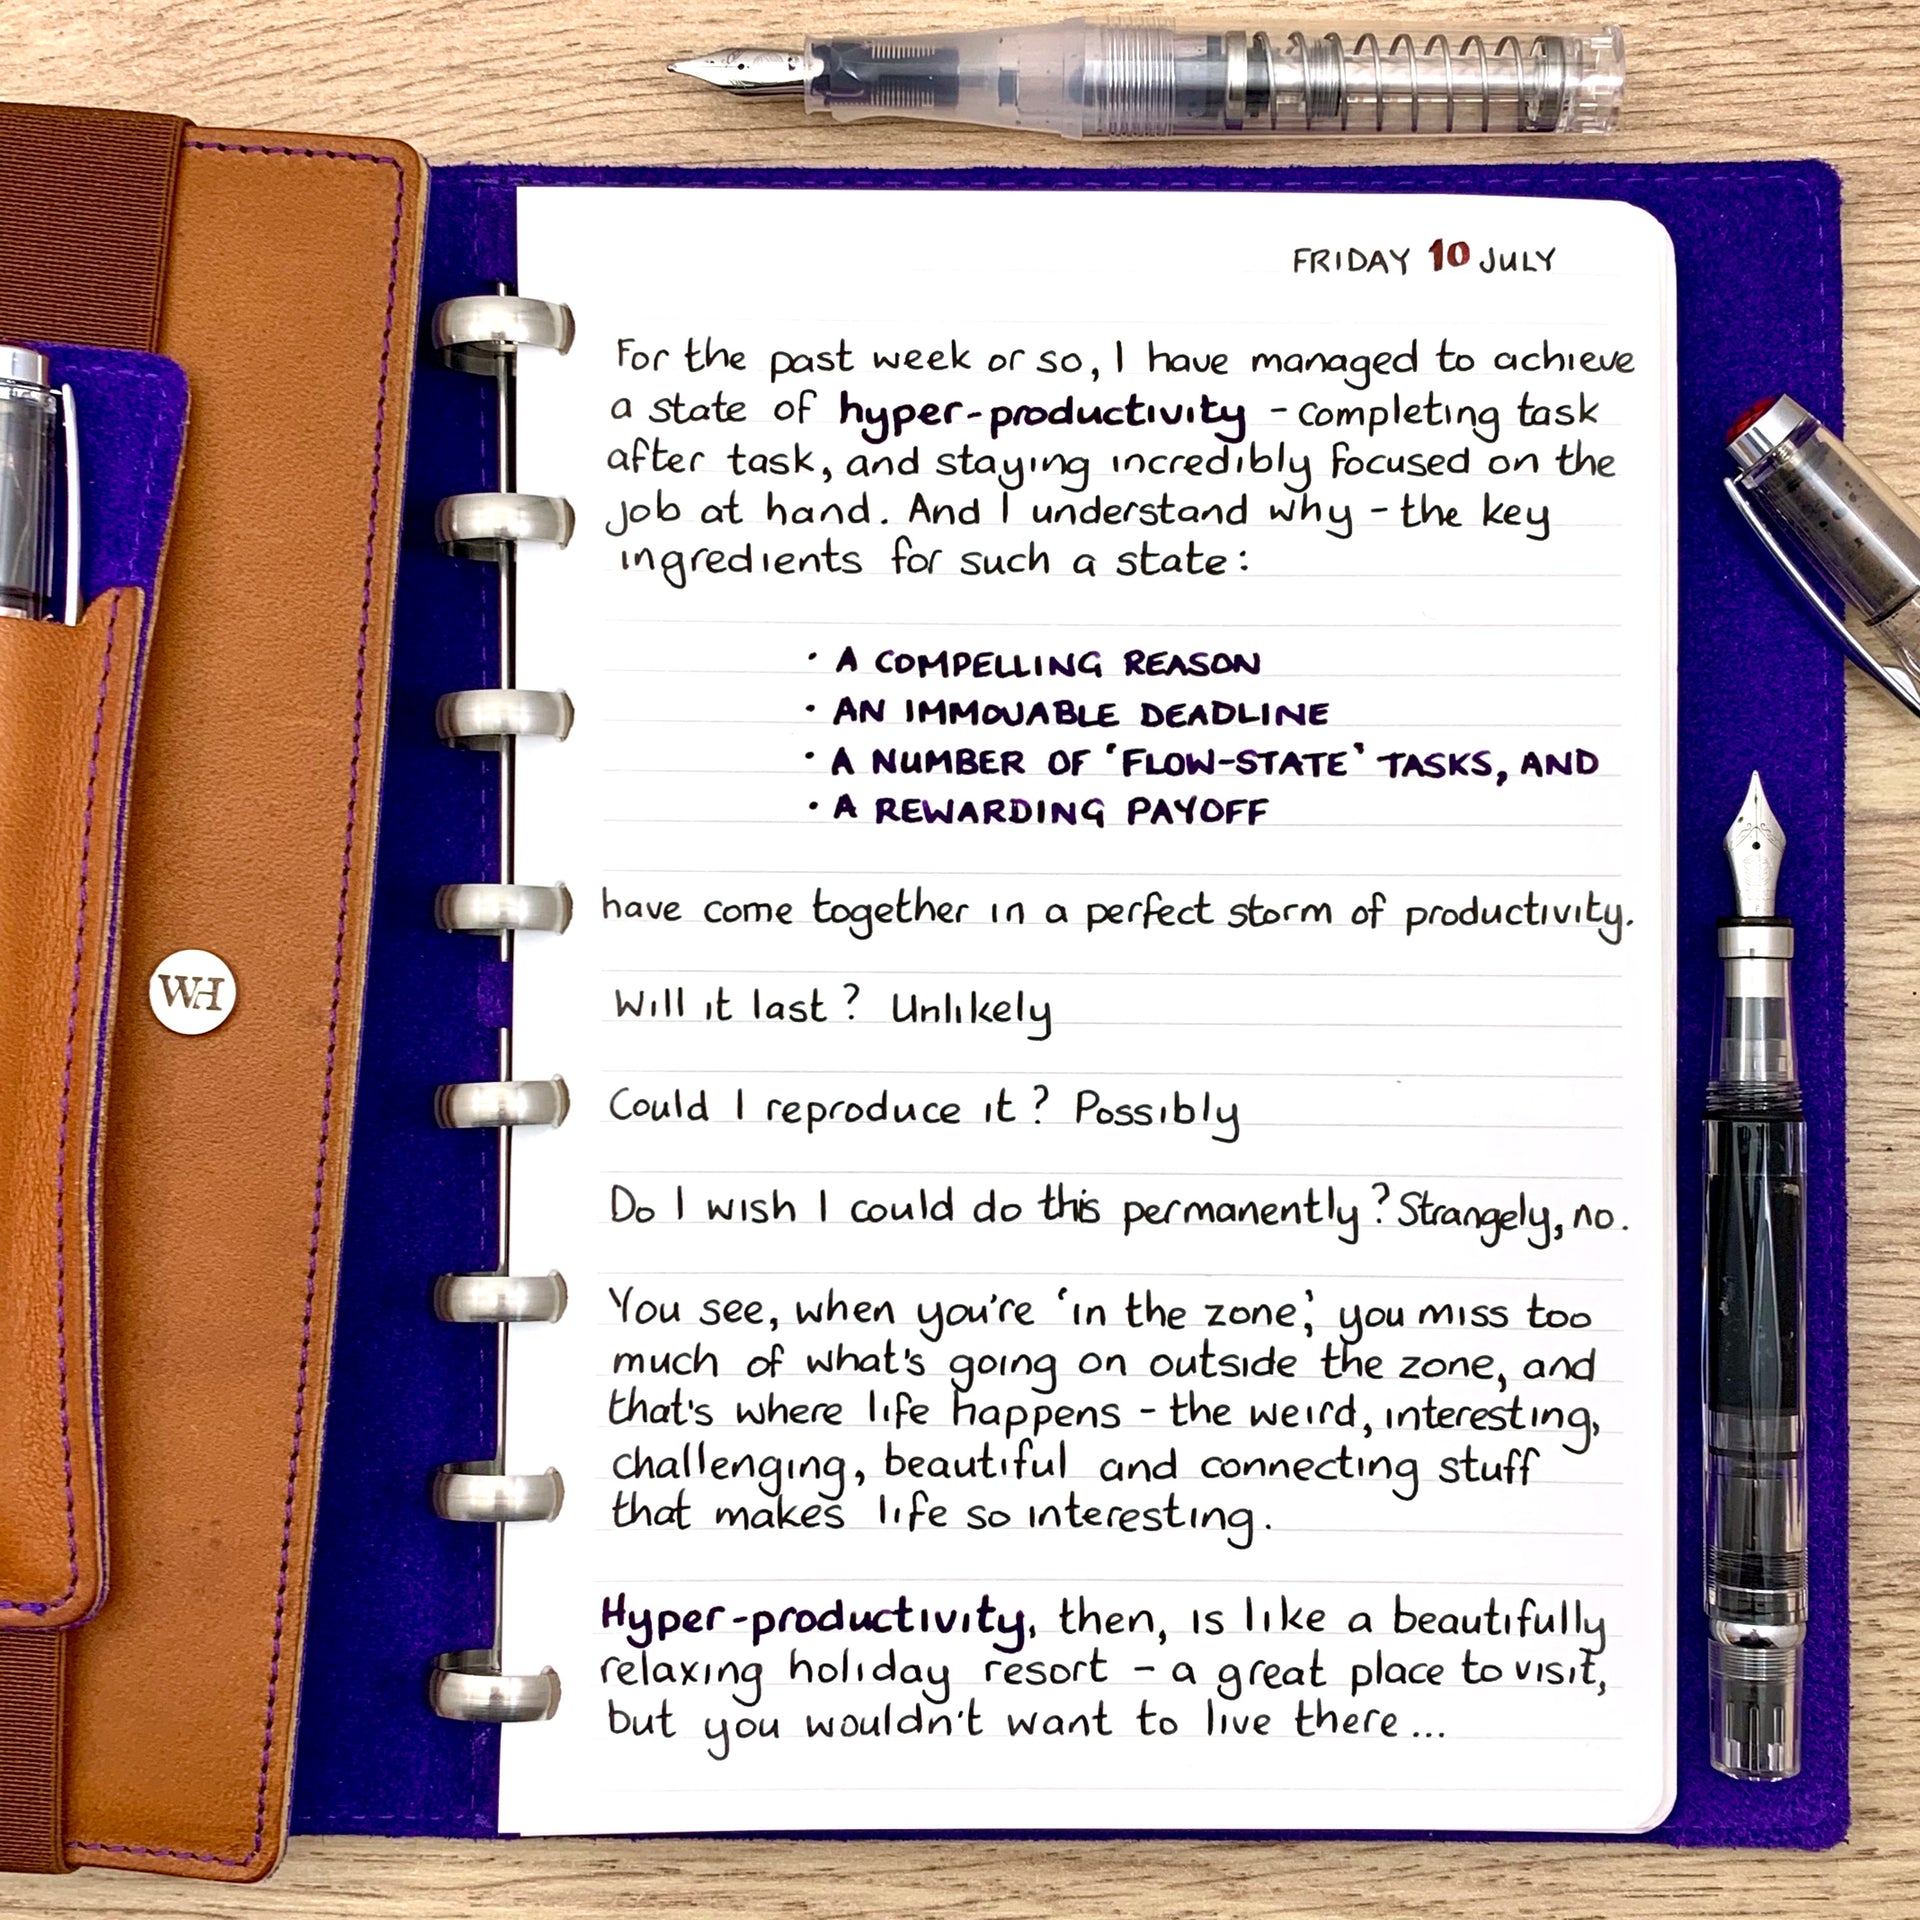 FRIDAY 10 JULY
For the past week or so, I have managed to achieve
a state of hyper-productivity - completing task
after task, and staying incredibly focused on the
job at hand. And I understand why - the key
ingredients for such a state:
· A COMPELLING REASON
· AN IMMOVABLE DEADLINE
· A NUMBER OF 'FLOW-STATE' TASKS, AND
· A REWARDING PAYOFF
have come together in a perfect storm of productivity.
Will it last? Unlikely
Could I reproduce it? Possibly
Do I wish I could do this permanently? Strangely, no.
You see, when you're 'in the zone', you miss too
much of what's going on outside the zone, and
that's where life happens - the weird, interesting,
challenging, beautiful and connecting stuff
that makes life so interesting.
Hyper-productivity, then, is like a beautifully
relaxing holiday resort - a great place to visit,
but you wouldn't want to live there...
WH